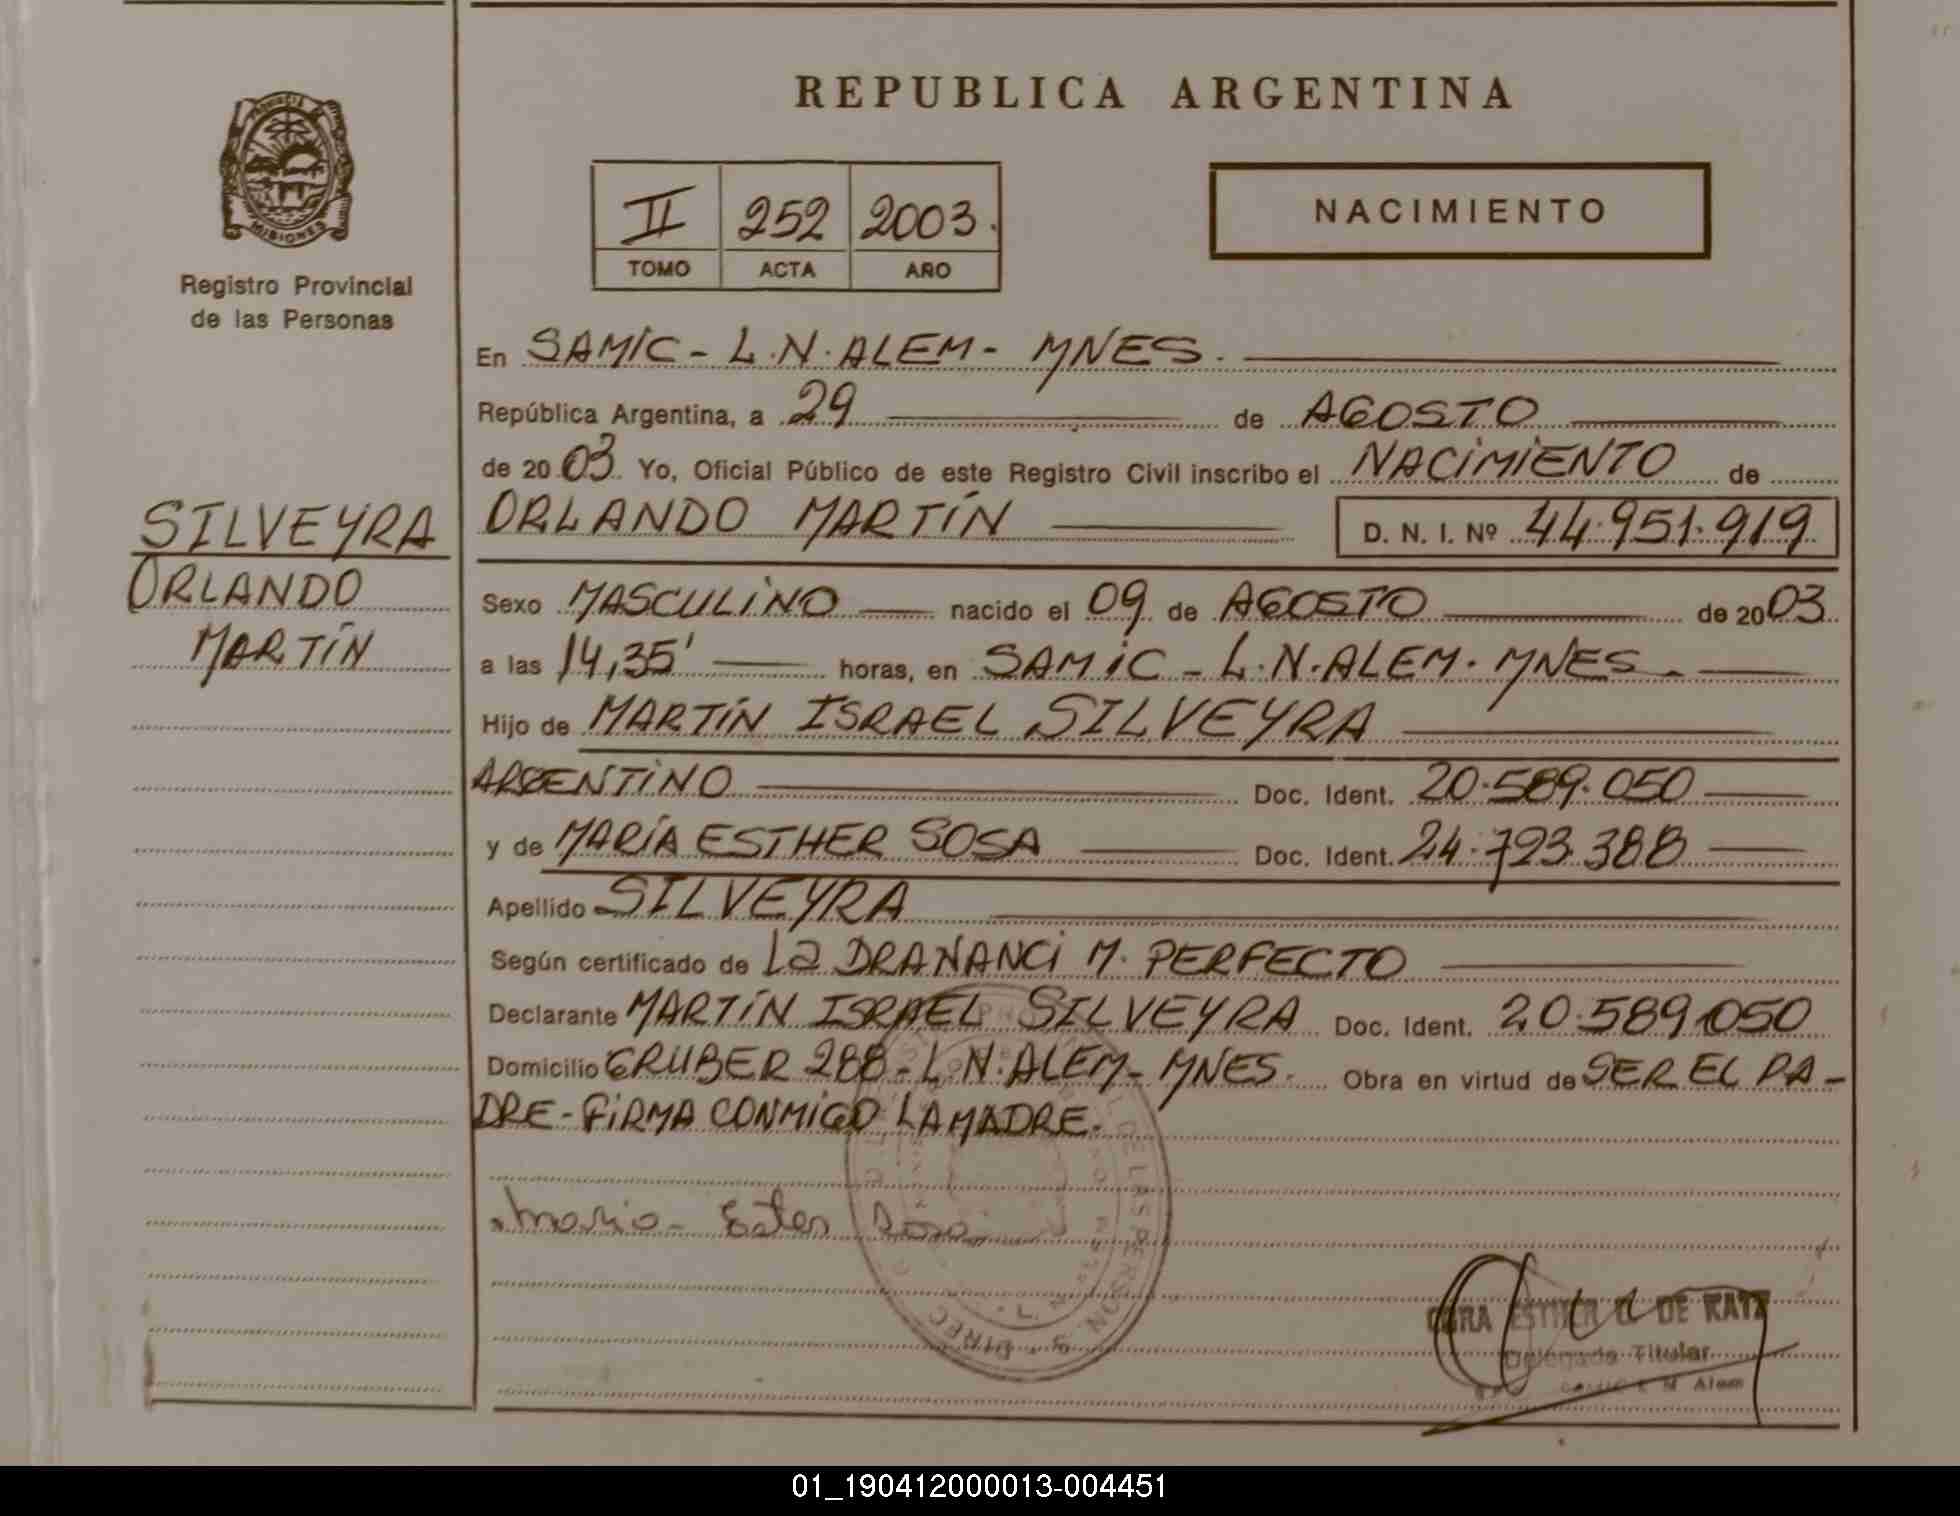 REPUBLICA ARGENTINA
PROVINCIA
MISIONES
Registro Provincial
de las Personas
II 252 2003.
TOMO ACTA AÑO
NACIMIENTO
En SAMIC - L.N. ALEM - MNES.
República Argentina, a 29 de AGOSTO
de 2003 Yo, Oficial Público de este Registro Civil inscribo el NACIMIENTO de
ORLANDO MARTÍN D. N. I. Nº 44.951.919
SILVEYRA
ORLANDO
MARTÍN
Sexo MASCULINO nacido el 09 de AGOSTO de 2003
a las 14,35' horas, en SAMIC - L.N. ALEM. MNES.
Hijo de MARTÍN ISRAEL SILVEYRA
ARGENTINO Doc. Ident. 20.589.050
y de MARÍA ESTHER SOSA Doc. Ident. 24.723.388
Apellido SILVEYRA
Según certificado de La DRA NANCI M. PERFECTO
Declarante MARTÍN ISRAEL SILVEYRA Doc. Ident. 20.589.050
Domicilio GRUBER 288 - L.N. ALEM - MNES. Obra en virtud de SER EL PA-
DRE - FIRMA CONMIGO LA MADRE.
Maria Ester Sosa
DE LAS PERSONAS DIREC
ESTHER DE KATZ
Delegada Titular
Alem
01_190412000013-004451